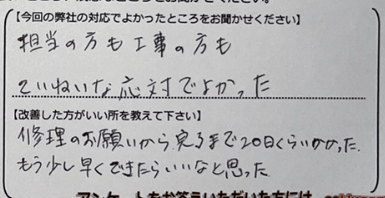 【今回の弊社の対応でよかったところをお聞かせください】
担当の方も工事の方も
ていねいな応対でよかった
【改善した方がいい所を教えて下さい】
修理のお願いから完了まで20日くらいかかった.
もう少し早くできたらいいなと思った
アンケートをお答えいただいた方には